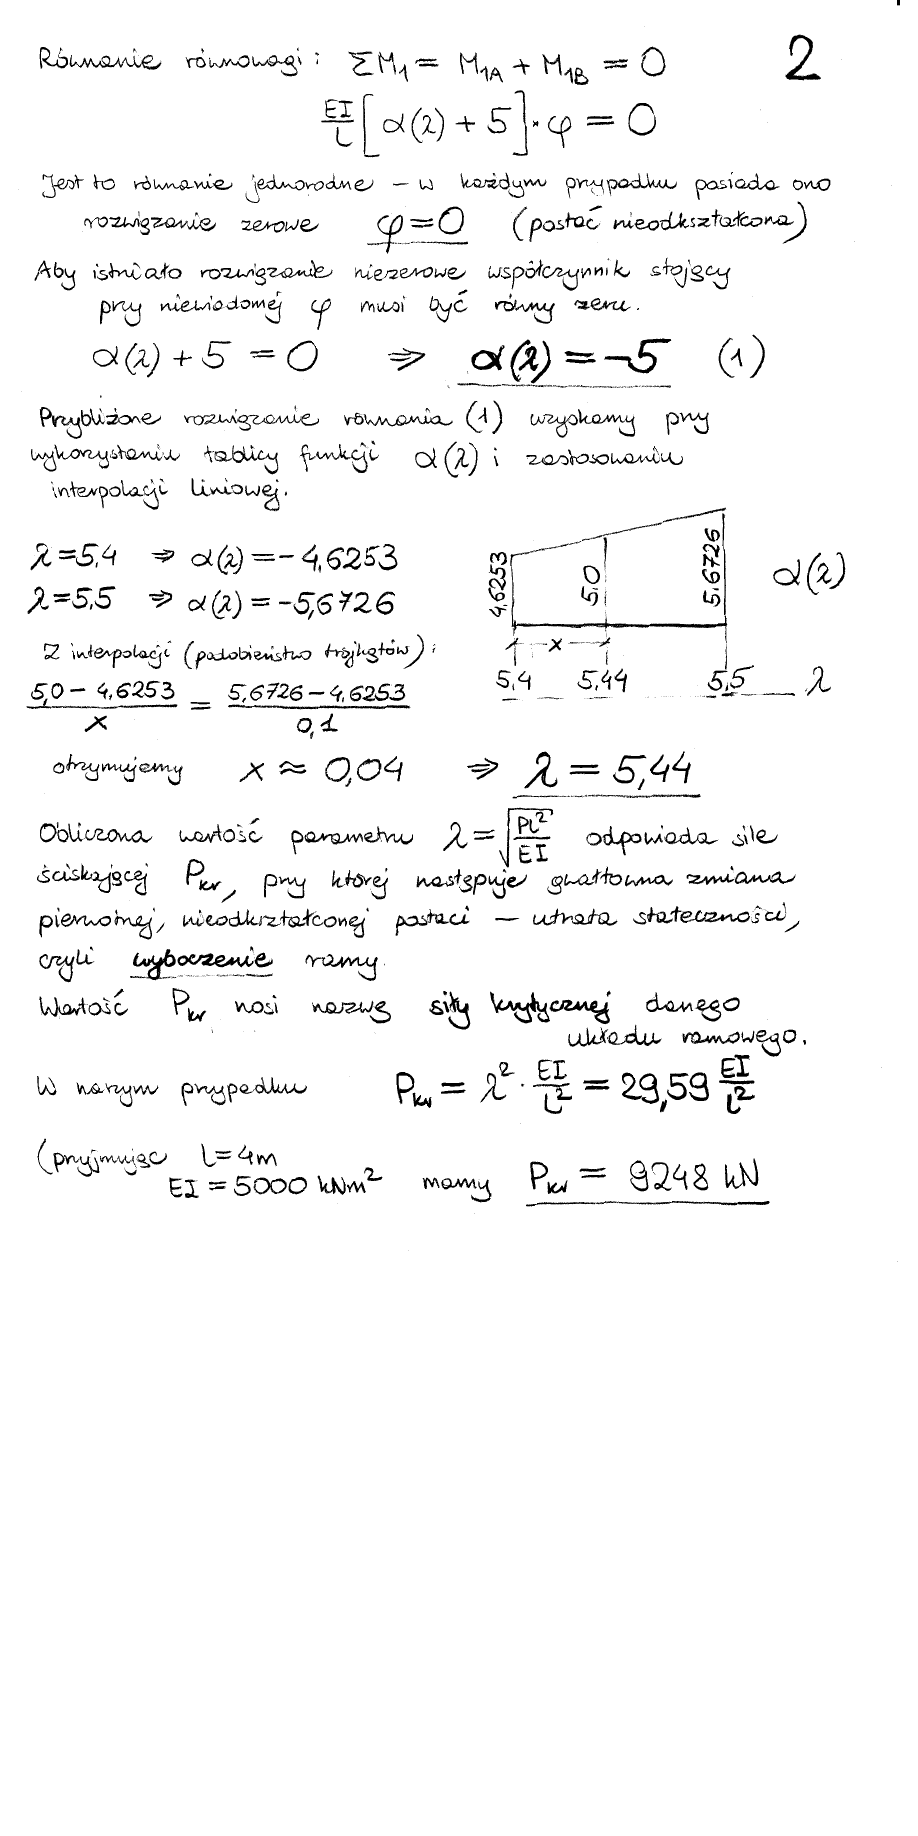 Równanie równowagi: ΣM₁ = M₁A + M₁B = 0
2
EI/l [α(λ) + 5]·φ = 0
Jest to równanie jednorodne – w każdym przypadku posiada ono
rozwiązanie zerowe φ=0 (postać nieodkształcona)
Aby istniało rozwiązanie niezerowe współczynnik stojący
przy niewiadomej φ musi być równy zeru.
α(λ) + 5 = 0 ⇒ α(λ) = -5 (1)
Przybliżone rozwiązanie równania (1) uzyskamy przy
wykorzystaniu tablicy funkcji α(λ) i zastosowaniu
interpolacji liniowej.
λ=5,4 ⇒ α(λ) = -4,6253
λ=5,5 ⇒ α(λ) = -5,6726
4,6253 5,0 5,6726 α(λ)
x
5,4 5,44 5,5 λ
Z interpolacji (podobieństwo trójkątów):
(5,0 - 4,6253)/x = (5,6726 - 4,6253)/0,1
otrzymujemy x ≈ 0,04 ⇒ λ = 5,44
Obliczona wartość parametru λ = √(Pl²/EI) odpowiada sile
ściskającej Pkr, przy której następuje gwałtowna zmiana
pierwotnej, nieodkształconej postaci – utrata stateczności,
czyli wyboczenie ramy.
Wartość Pkr nosi nazwę siły krytycznej danego
układu ramowego.
W naszym przypadku Pkr = λ² · EI/l² = 29,59 EI/l²
(przyjmując l=4m
EI = 5000 kNm² mamy Pkr = 9248 kN